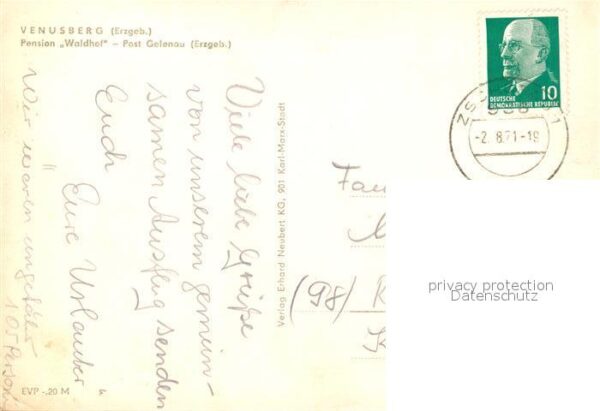 VENUSBERG (Erzgeb.)
Pension „Waldhof" – Post Gelenau (Erzgeb.)
Viele liebe Grüße
von unserem gemein-
samen Ausflug senden
Euch
"Eure Urlauber"
Wir waren ungefähr
105 Person
EVP -,20 M
Verlag Erhard Neubert KG, 901 Karl-Marx-Stadt
10
DEUTSCHE
DEMOKRATISCHE REPUBLIK
-2.8.71-19
Fam
(98)
privacy protection
Datenschutz